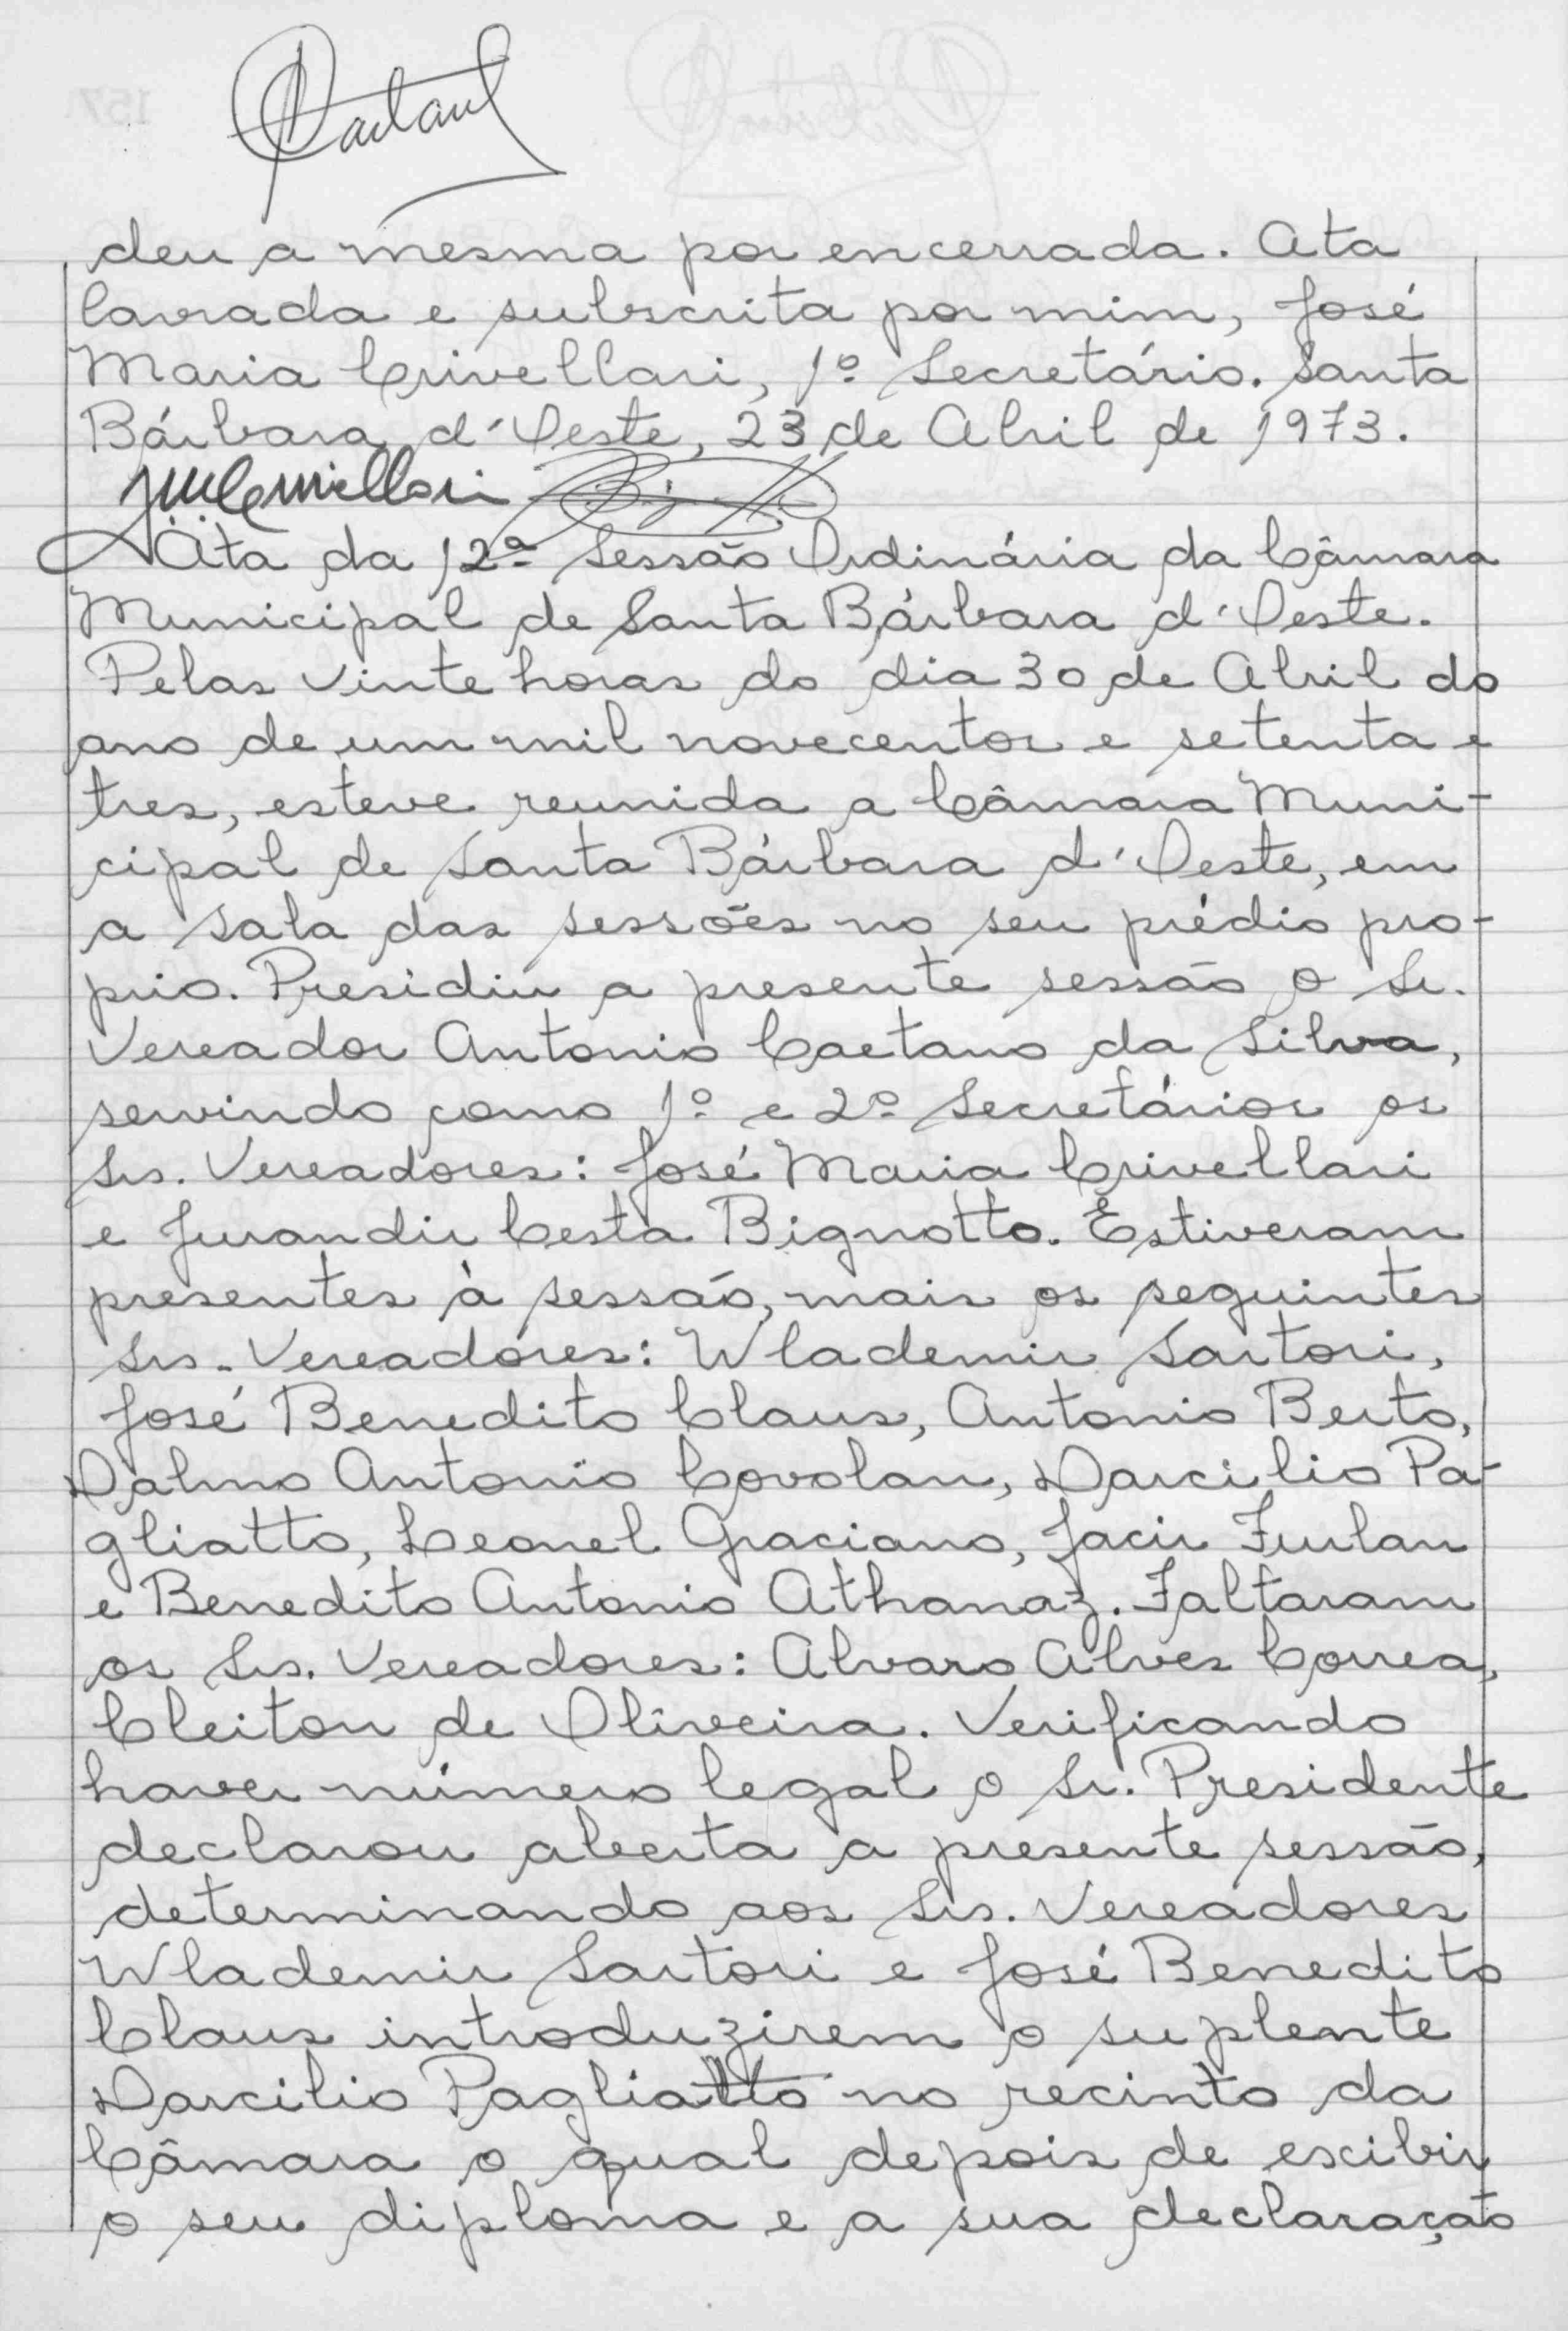 deu a mesma por encerrada. Ata
lavrada e subscrita por mim, José
Maria Crivellari, 1º Secretário. Santa
Bárbara d'Oeste, 23 de Abril de 1973.
Ata da 12ª Sessão Ordinária da Câmara
Municipal de Santa Bárbara d'Oeste.
Pelas vinte horas do dia 30 de Abril do
ano de um mil novecentos e setenta e
tres, esteve reunida a Câmara Muni-
cipal de Santa Bárbara d'Oeste, em
a sala das sessões no seu prédio pro-
prio. Presidiu a presente sessão o Sr.
Vereador Antonio Caetano da Silva,
servindo como 1º e 2º Secretários os
Srs. Vereadores: José Maria Crivellari
e Jurandir Cesta Bignotto. Estiveram
presentes à sessão, mais os seguintes
Srs. Vereadores: Wlademir Sartori,
José Benedito Claus, Antonio Berto,
Dalmo Antonio Covolan, Darcilio Pa-
gliatto, Leonel Graciano, Jacir Furlan
e Benedito Antonio Athanaz. Faltaram
os Srs. Vereadores: Alvaro Alves Correa,
Cleiton de Oliveira. Verificando
haver número legal o Sr. Presidente
declarou aberta a presente sessão,
determinando aos Srs. Vereadores
Wlademir Sartori e José Benedito
Claus introduzirem o suplente
Darcilio Pagliatto no recinto da
Câmara o qual depois de escibir
o seu diploma e a sua declaração